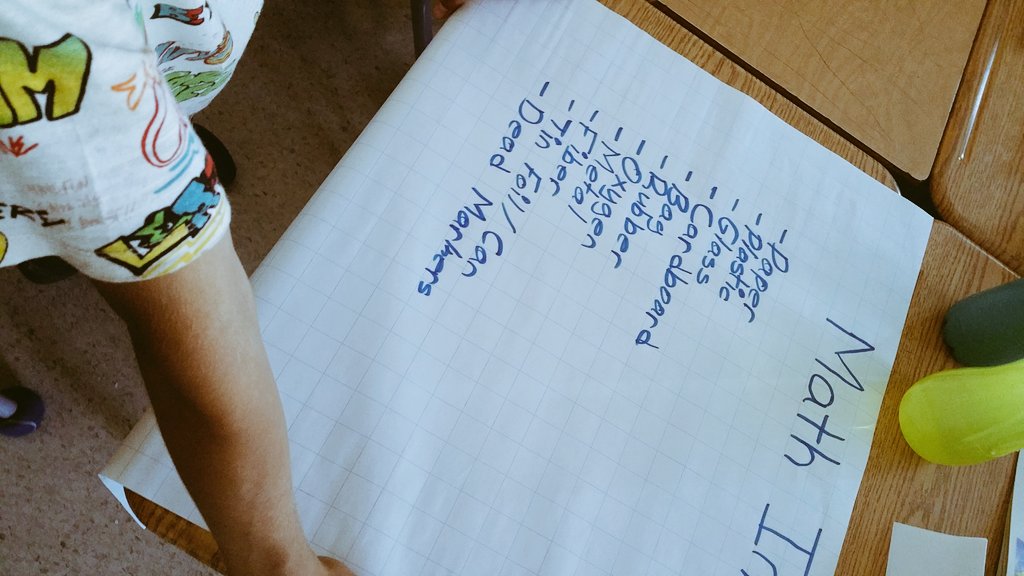 Math In
- Paper
- Plastic
- Glass
- Cardboard
- Bag
- Rubber
- Oxygen
- Metal
- Fiber
- Tin Foil/Can
- Dead Markers